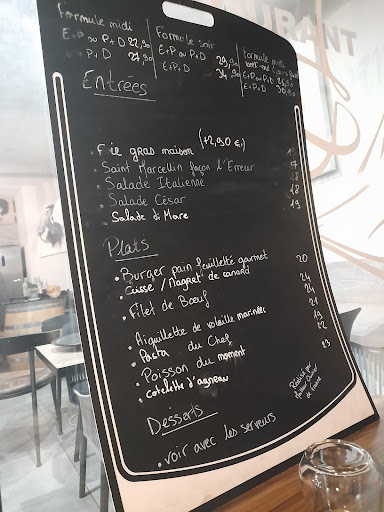 URANT
Formule midi
E+P ou P+D 22,90
E+P+D 27,90
Formule soir
E+P ou P+D 29,90
E+P+D 34,90
Formule midi
E+P ou P+D
E+P+D
Entrées
• F ie gras maison (+2,90 €)
• Saint Marcellin façon l'Erreur 17
• Salade Italienne 18
• Salade César 18
• Salade di Mare 19
Plats
• Burger pain feuilleté gourmet 20
• Cuisse / Magret de canard 24
• Filet de Boeuf 24
• Aiguillette de volaille marinées 21
• Pasta du Chef 19
• Poisson du moment 22
• cotelette d'agneau 23
Réalisé par
Maître Cuisinier
de France
Desserts
• voir avec les serveurs